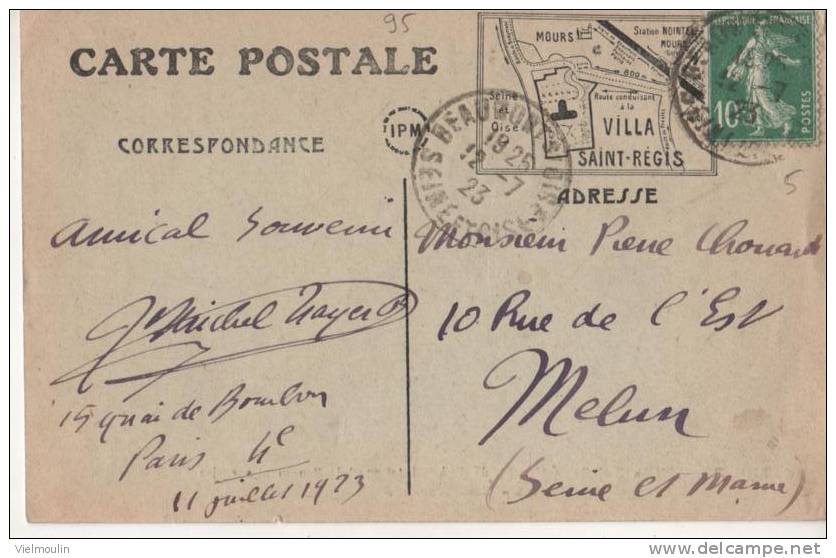 95
CARTE POSTALE
CORRESPONDANCE
IPM
MOURS
Station NOINTEL
MOURS
800 m
Seine
et
Oise
Route conduisant
à la
VILLA
SAINT-RÉGIS
BEAUMONT S/ OISE
19 25
12 -7
23
SEINE ET OISE
RÉPUBLIQUE FRANÇAISE
10c
POSTES
12 -7
23
5
ADRESSE
Amical Souvenir
Michel
15 quai de Bourbon
Paris 4e
11 juillet 1923
Monsieur Pierre Chouard
10 Rue de l'Est
Melun
(Seine et Marne)
© Vielmoulin
delcampe.net